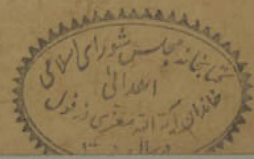 کتابخانه مجلس شورای اسلامی
اهدائی
خاندان آیة الله معزی دزفولی